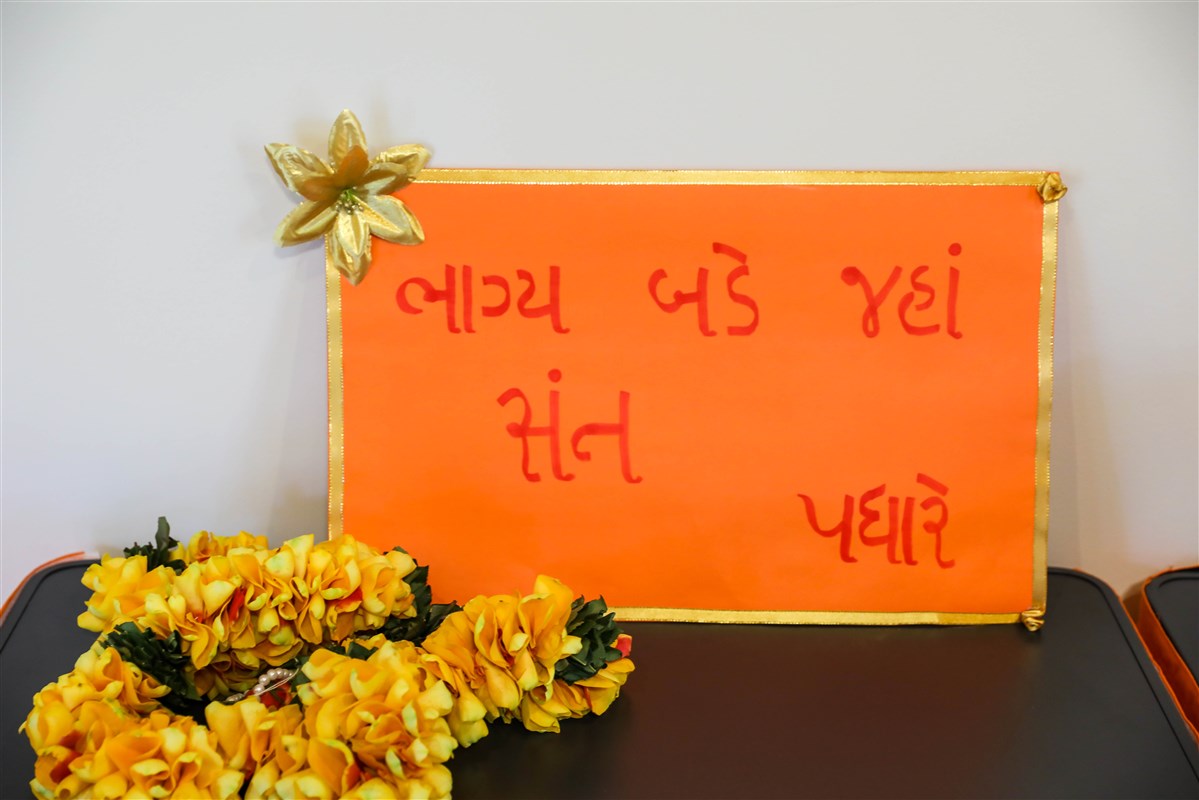 ભાગ્ય બડે જહાં
સંત
પધારે